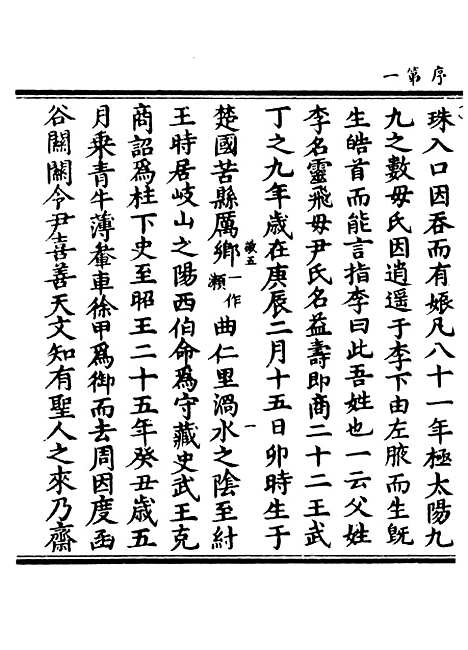 序第一
珠入口因吞而有娠凡八十一年極太陽九
九之數毋氏因逍遥于李下由左腋而生旣
生皓首而能言指李曰此吾姓也一云父姓
李名靈飛毋尹氏名益壽即商二十二王武
丁之九年歲在庚辰二月十五日卯時生于
楚國苦縣厲鄉一作瀬曲仁里渦水之陰至紂
敬五
一
王時居岐山之陽西伯命爲守藏史武王克
商詔爲柱下史至昭王二十五年癸丑歲五
月乘青牛薄軬車徐甲爲御而去周因度函
谷關關令尹喜善天文知有聖人之來乃齋